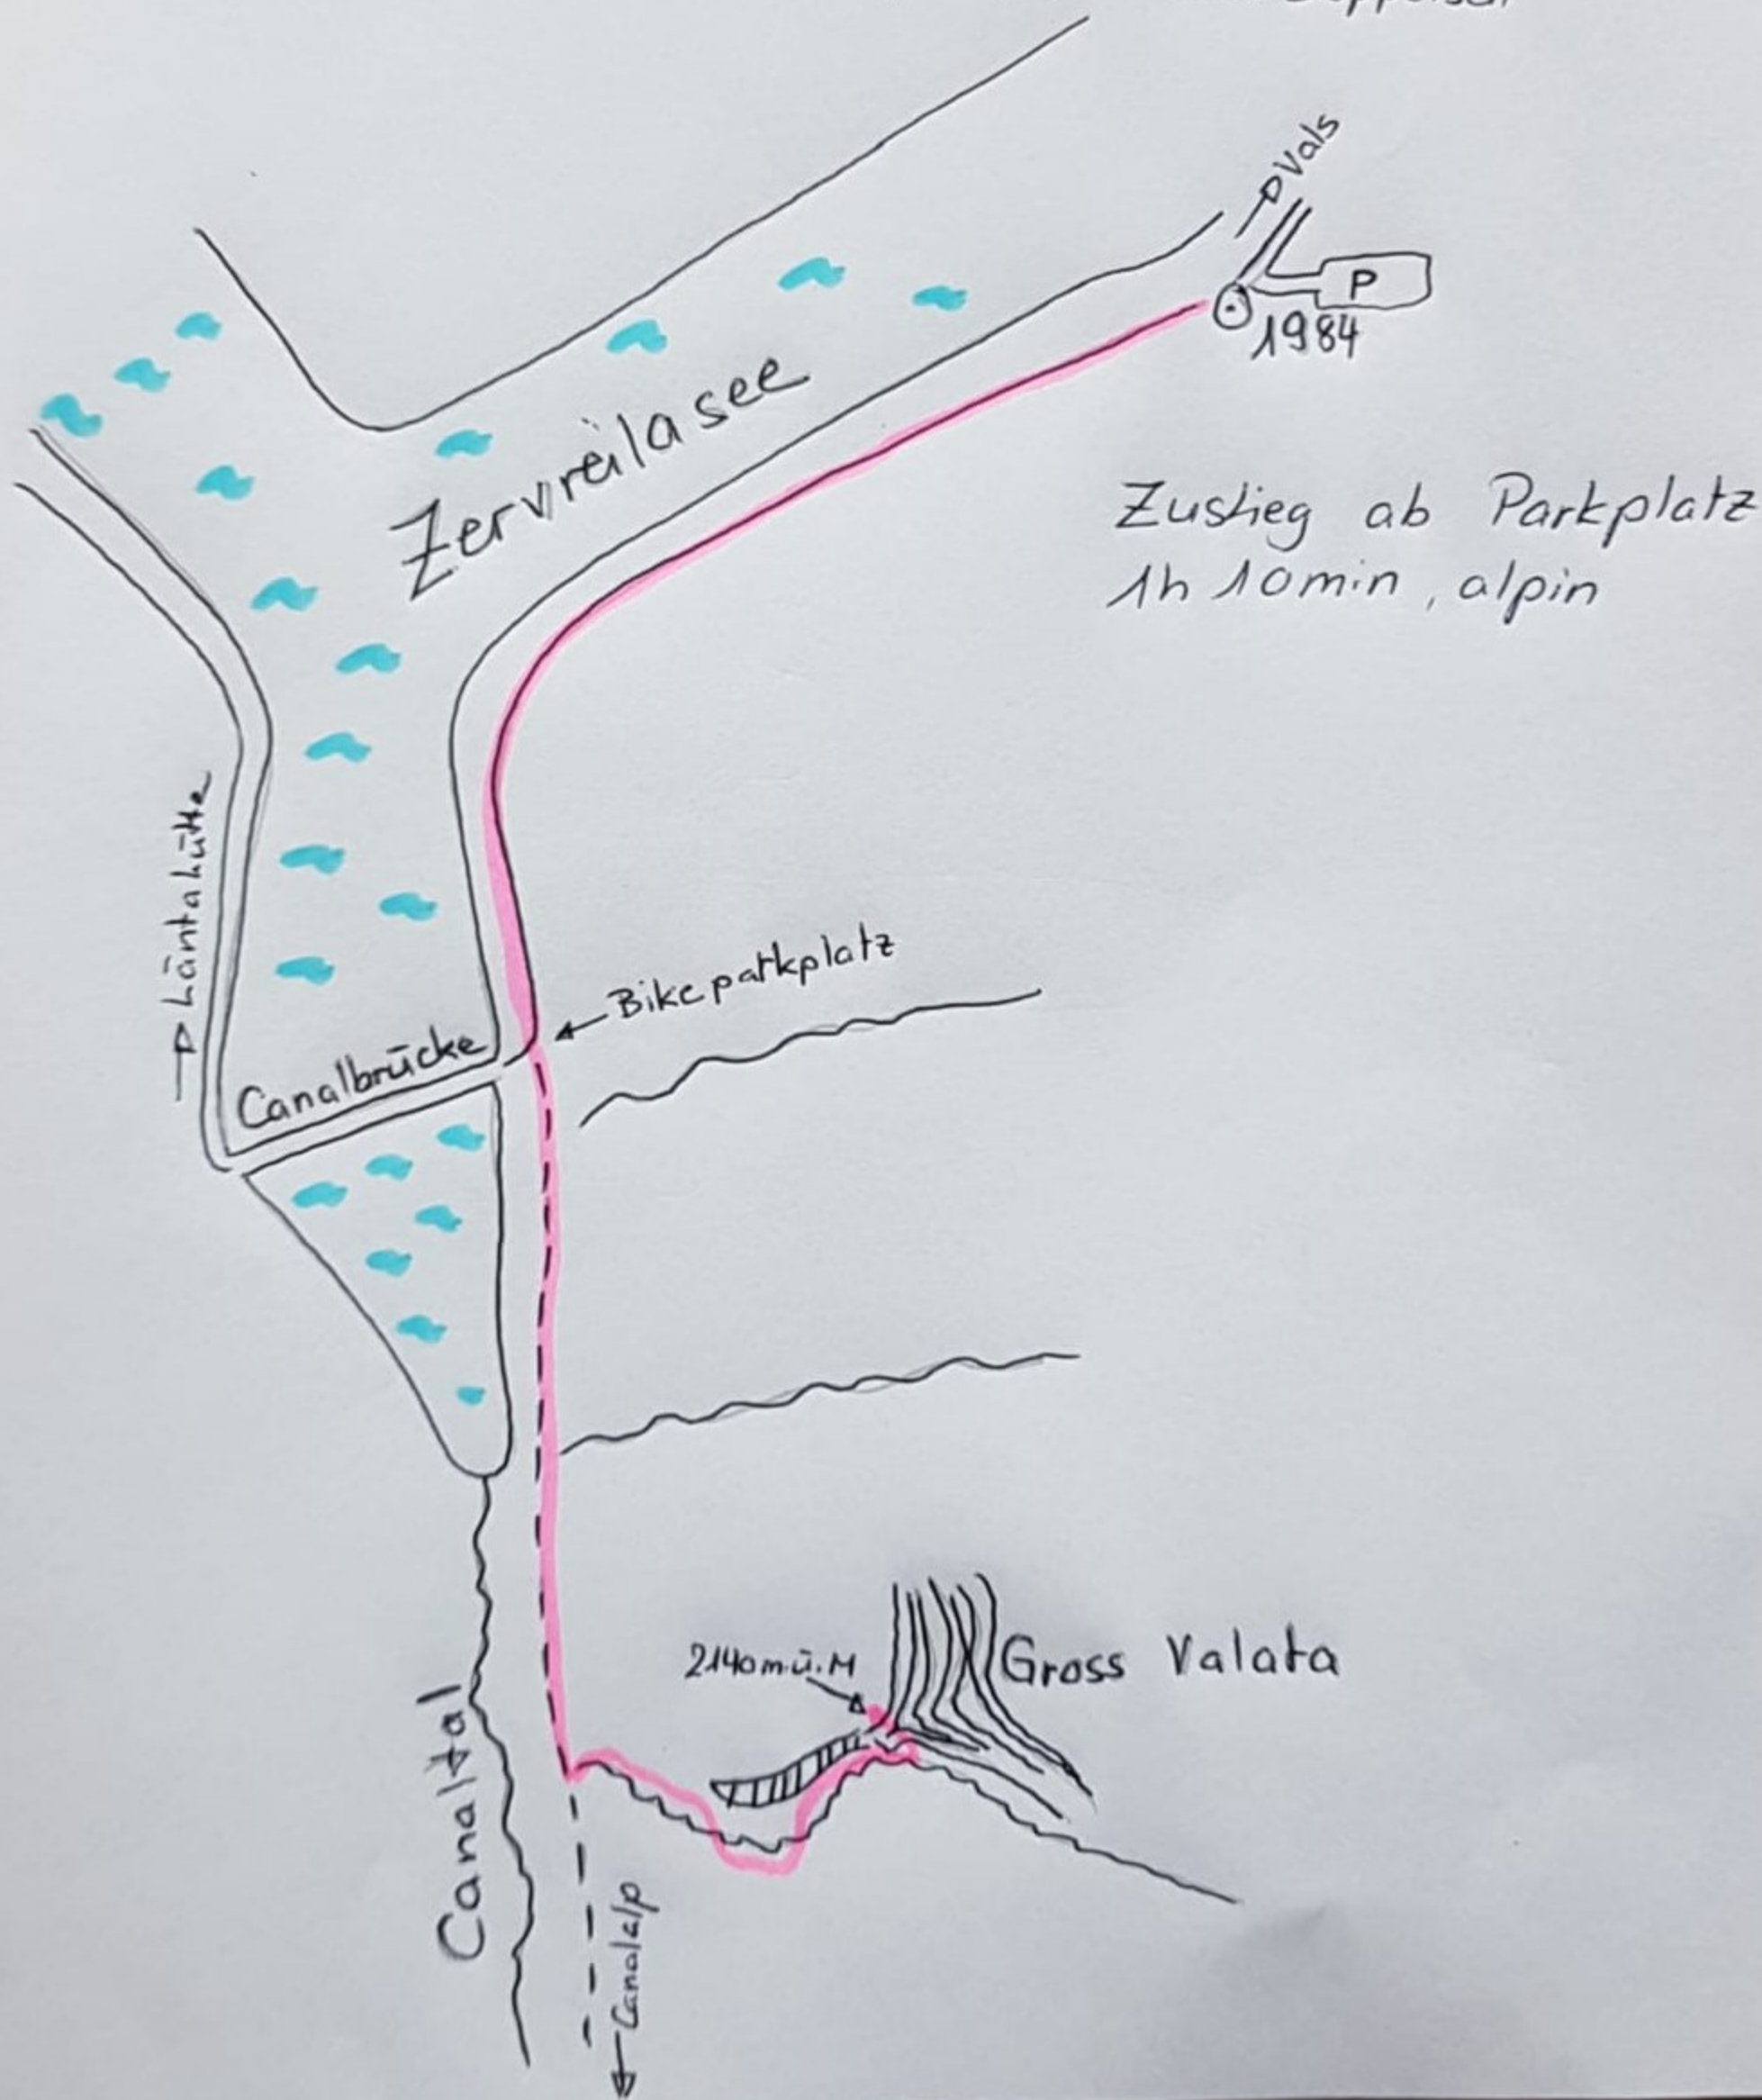 Vals
P
1984
Zervreilasee
Zustieg ab Parkplatz
1h 10min, alpin
Läntahütte
Bikeparkplatz
Canalbrücke
2140m.ü.M
Gross Valata
Canaltal
Canalalp